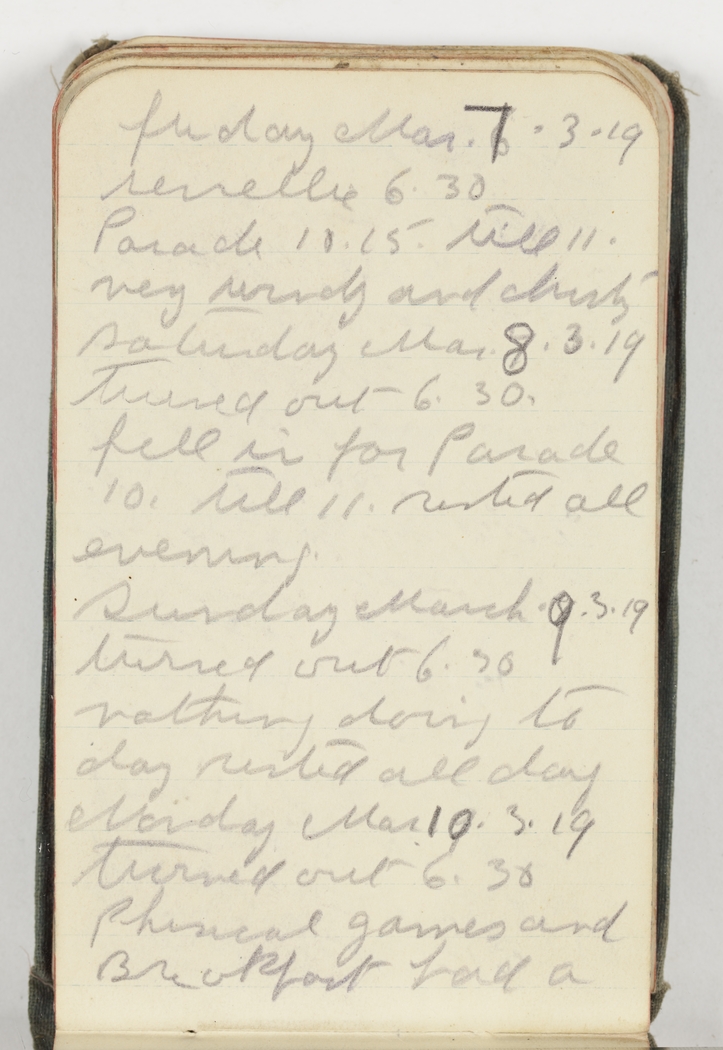 friday Mar. 7 . 3 . 19
revellie 6. 30
Parade 10. 15. till 11.
very windy and dusty
Saturday Mar. 8. 3. 19
turned out 6. 30.
fell in for Parade
10. till 11. rested all
evening.
Sunday March 9. 3. 19
turned out 6. 30
nothing doing to
day rested all day
Monday Mar 10. 3. 19
turned out 6. 30
Phisical games and
Breakfast had a